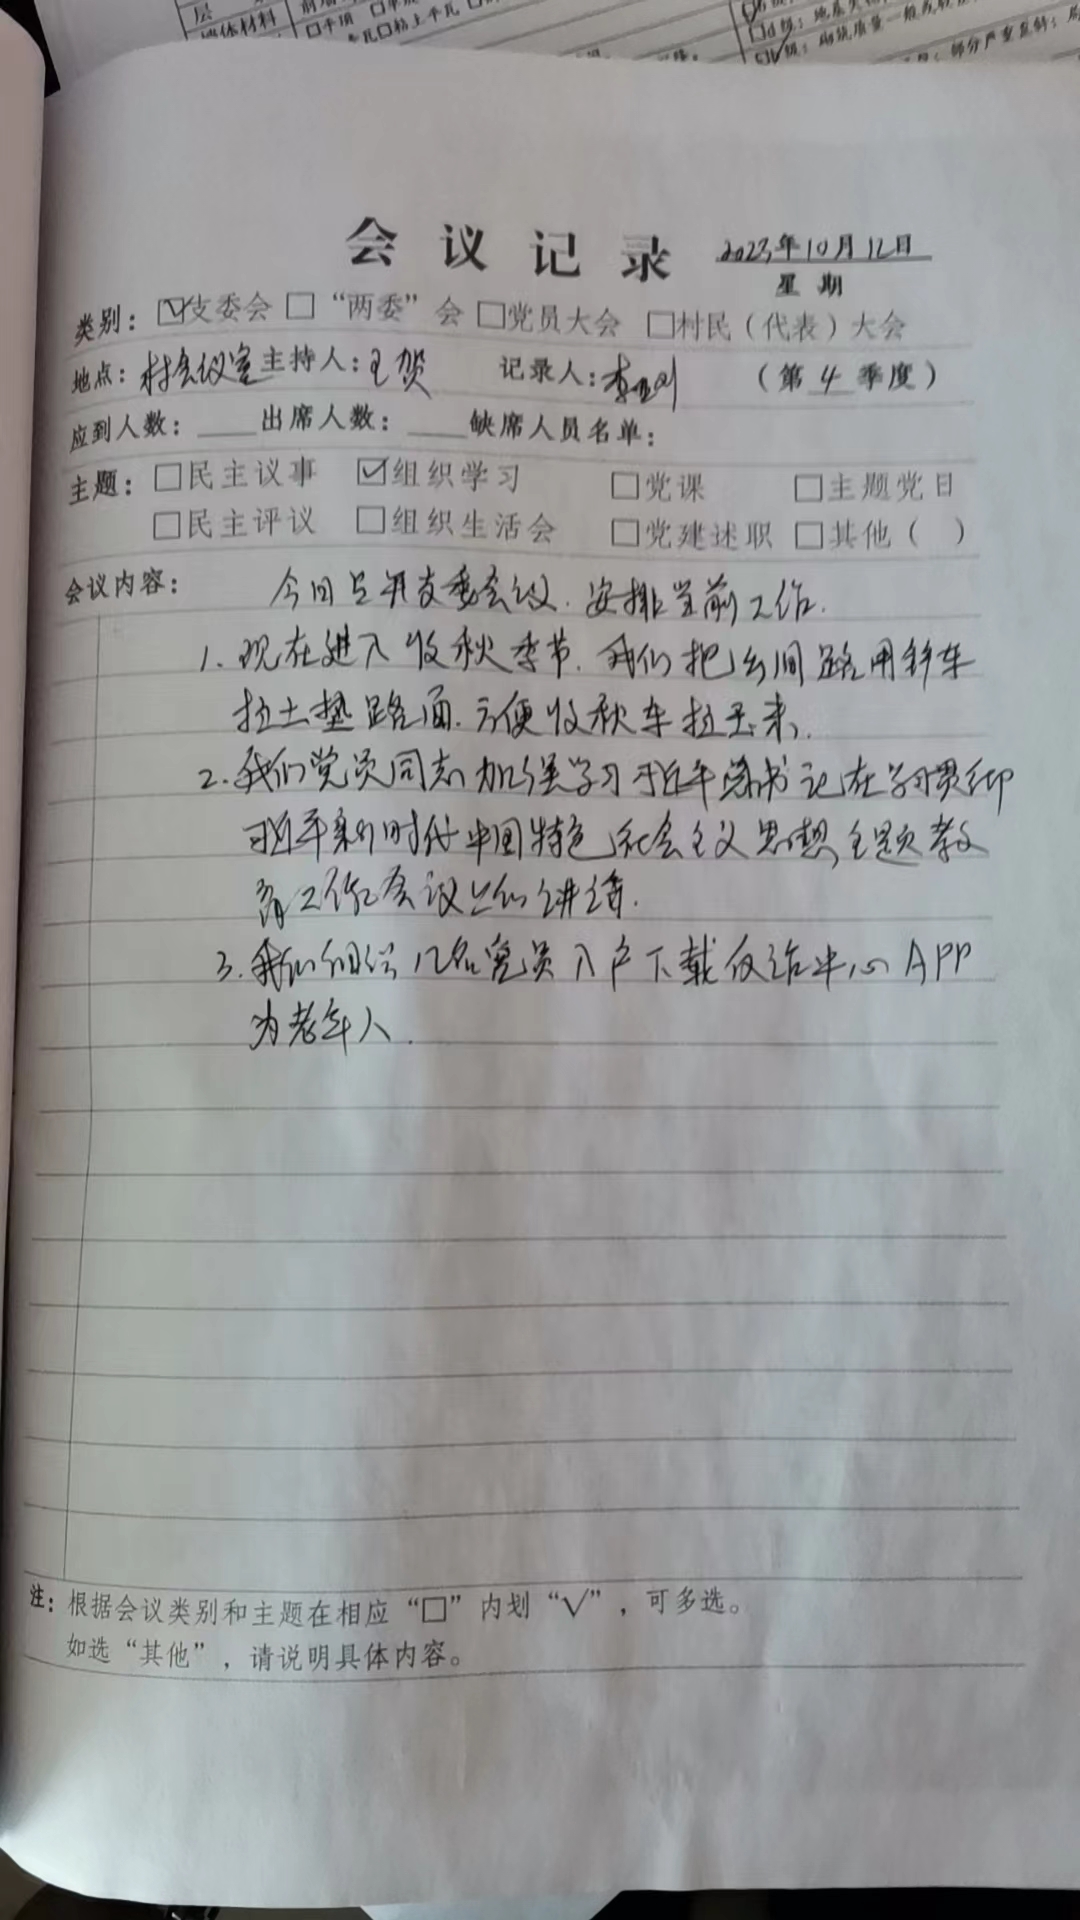 层
墙体材料
会议记录 2023年10月12日
星期
类别：☑支委会 □“两委”会 □党员大会 □村民（代表）大会
地点：村会议室 主持人：王贺 记录人：李 （第4季度）
应到人数：____出席人数：____缺席人员名单：
主题：□民主议事 ☑组织学习 □党课 □主题党日
□民主评议 □组织生活会 □党建述职 □其他（ ）
会议内容： 今日召开支委会议.安排当前工作.
1.现在进入收秋季节.我们把田间路用铲车
拉土垫路面.方便收秋车拉玉米.
2.我们党员同志加强学习习近平总书记在学习贯彻
习近平新时代中国特色社会主义思想主题教
育工作会议上的讲话.
3.我们组织几名党员入户下载反诈中心APP
为老年人.
注：根据会议类别和主题在相应“□”内划“√”，可多选。
如选“其他”，请说明具体内容。